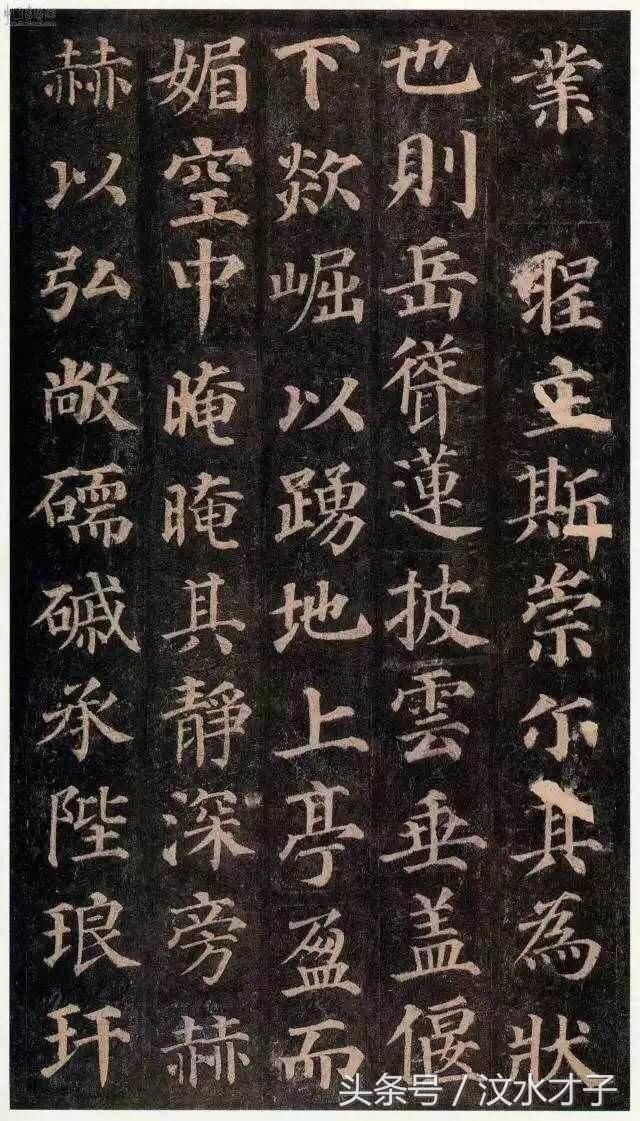 業 聖主斯崇尒其為狀
也則岳聳蓮披雲垂盖偃
下欻崛以踴地上亭盈而
媚空中晻晻其靜深旁赫
赫以弘敞礝磩承陛琅玕
头条号 / 汶水才子